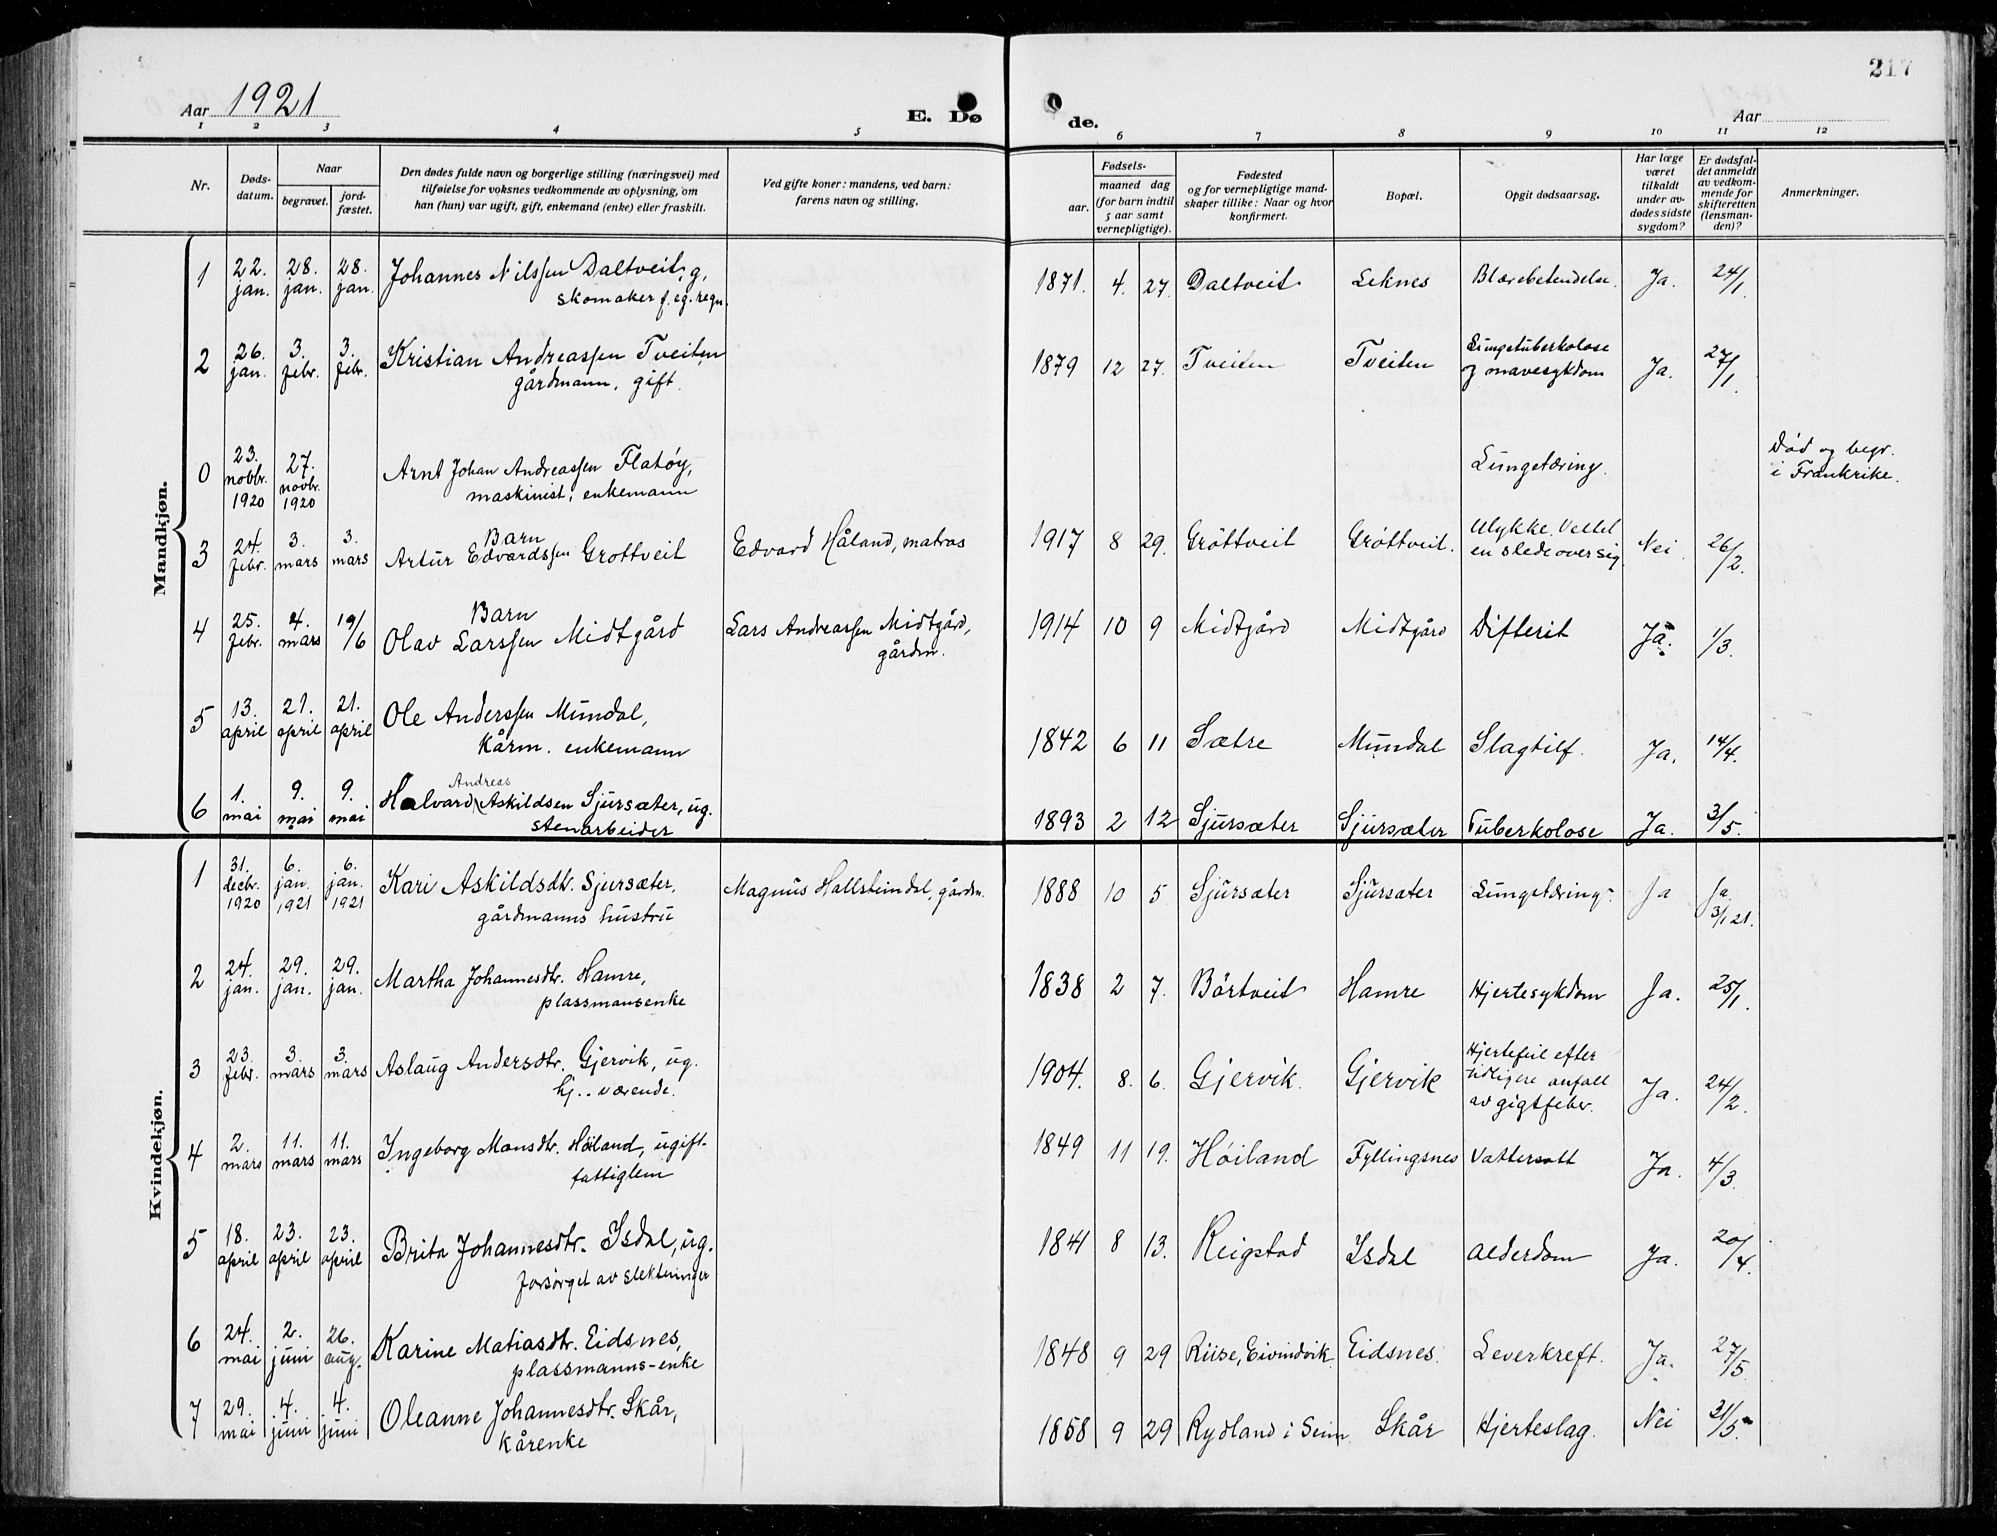 217
Aar 1921
E. Dø
de.
Aar
1 2 3 4 5 6 7 8 9 10 11 12
Nr.
Døds-
datum.
Naar
begravet.
jord-
fæstet.
Den dødes fulde navn og borgerlige stilling (næringsvei) med
tilføielse for voksnes vedkommende av oplysning, om
han (hun) var ugift, gift, enkemand (enke) eller fraskilt.
Ved gifte koner: mandens, ved barn:
farens navn og stilling.
Fødsels-
aar.
maaned dag
(for barn indtil
5 aar samt
vernepligtige).
Fødested
og for vernepligtige mand-
skaper tillike: Naar og hvor
konfirmert.
Bopæl.
Opgit dødsaarsag.
Har læge
været
tilkaldt
under av-
dødes sidste
sygdom?
Er dødsfal-
det anmeldt
av vedkom-
mende for
skifteretten
(lensman-
den)?
Anmerkninger.
Mandkjøn.
1 22. jan. 28. jan. 28. jan. Johannes Nilssen Daltveit, g, 1871. 4. 27. Daltveit Leknes Blærebetendelse. Ja. 24/1.
skomaker f. eg. regn.
2 26. jan. 3. febr. 3. febr. Kristian Andreassen Tveiten 1879 12 27. Tveiten Tveiten Lungetuberkolose Ja. 27/1.
gårdmann, gift. og mavesykdom
0 23. novbr. 1920 27. novbr. 1920 Arnt Johan Andreassen Flatøy, Lungetæring. Död og begr.
maskinist, enkemann i Frankrike.
3 24. febr. 3. mars 3. mars Barn
Artur Edvardssen Grottveit Edvard Håland, matros 1917 8 29. Gröttveit Gröttveit. Ulykke. Veltet Nei. 26/2.
en slede over sig
4 25. febr. 4. mars 19/6 Barn
Olav Larssen Midtgård Lars Andreassen Midtgård, 1914 10 9 Midtgård Midtgård Difterit Ja. 1/3.
gårdm.
5 13. april 21. april 21. april Ole Anderssen Mundal, 1842 6 11 Sætre Mundal Slagtilf. Ja. 14/4.
kårm. enkemann
6 1. mai 9. mai 9. mai Andreas
Halvard Askildsen Sjursæter, ug. 1893 2 12 Sjursæter Sjursæter Tuberkolose Ja. 3/5.
stenarbeider
Kvindekjøn.
1 31. decbr. 1920 6. jan. 1921 6. jan. 1921 Kari Askildsdtr. Sjursæter, Magnus Hallsteindal, gårdm. 1888 10 5 Sjursæter Sjursæter Lungetæring Ja Ja 3/1 21.
gårdmanns hustru
2 24. jan. 29. jan. 29. jan. Martha Johannesdtr. Hamre, 1838 2 7. Börtveit Hamre Hjertesykdom Ja. 25/1.
plassmansenke
3 23. febr. 3. mars 3. mars Aslaug Andersdtr. Gjervik, ug. 1904. 8. 6. Gjervik. Gjervik Hjertefeil efter Ja. 24/2.
hj.. værende. tidligere anfall
av gigtfeber.
4 2. mars 11. mars 11. mars Ingeborg Monsdtr. Höiland, ugift 1849 11 19. Höiland Fyllingsnes Vattersott Ja. 4/3.
fattiglem
5 18. april 23. april 23. april Brita Johannesdtr. Isdal, ug. 1841 8 13. Reigstad Isdal Alderdom Ja. 20/4.
forsörget av slektninger
6 24. mai 2. juni 26. aug. Karine Matiasdtr. Eidsnes, 1848 9 29 Riise, Eivindvik Eidsnes. Leverkreft. Ja. 27/5
plassmanns-enke
7 29. mai 4. juni 4. juni Oleanne Johannesdtr. Skår, 1858 9 29 Rydland i Seim Skår Hjerteslag. Nei 31/5
kårenke